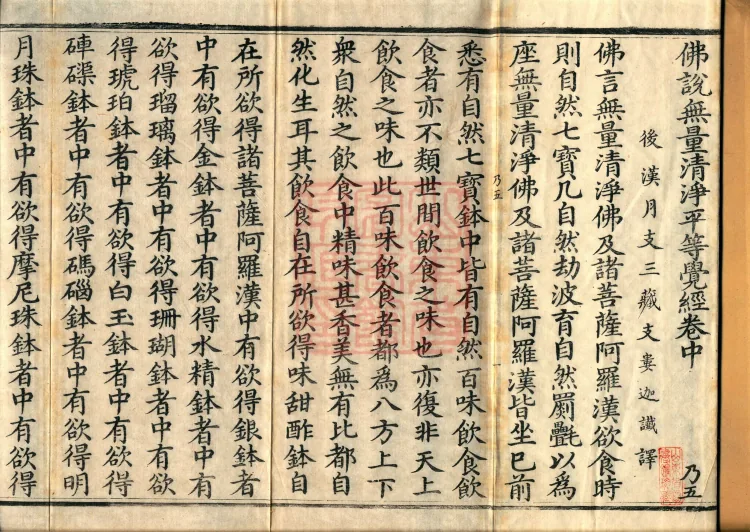 佛說無量清淨平等覺經卷中
乃五
後漢月支三藏支婁迦讖譯
佛言無量清淨佛及諸菩薩阿羅漢欲食時
則自然七寶几自然劫波育自然罽㲲以爲
座無量清淨佛及諸菩薩阿羅漢皆坐已前
乃五
悉有自然七寶鉢中皆有自然百味飲食飲
食者亦不類世間飲食之味也亦復非天上
飲食之味也此百味飲食者都爲八方上下
衆自然之飲食中精味甚香美無有比都自
然化生耳其飲食自在所欲得味甜酢鉢自
在所欲得諸菩薩阿羅漢中有欲得銀鉢者
中有欲得金鉢者中有欲得水精鉢者中有
欲得瑠璃鉢者中有欲得珊瑚鉢者中有欲
得琥珀鉢者中有欲得白玉鉢者中有欲得
硨磲鉢者中有欲得碼碯鉢者中有欲得明
月珠鉢者中有欲得摩尼珠鉢者中有欲得